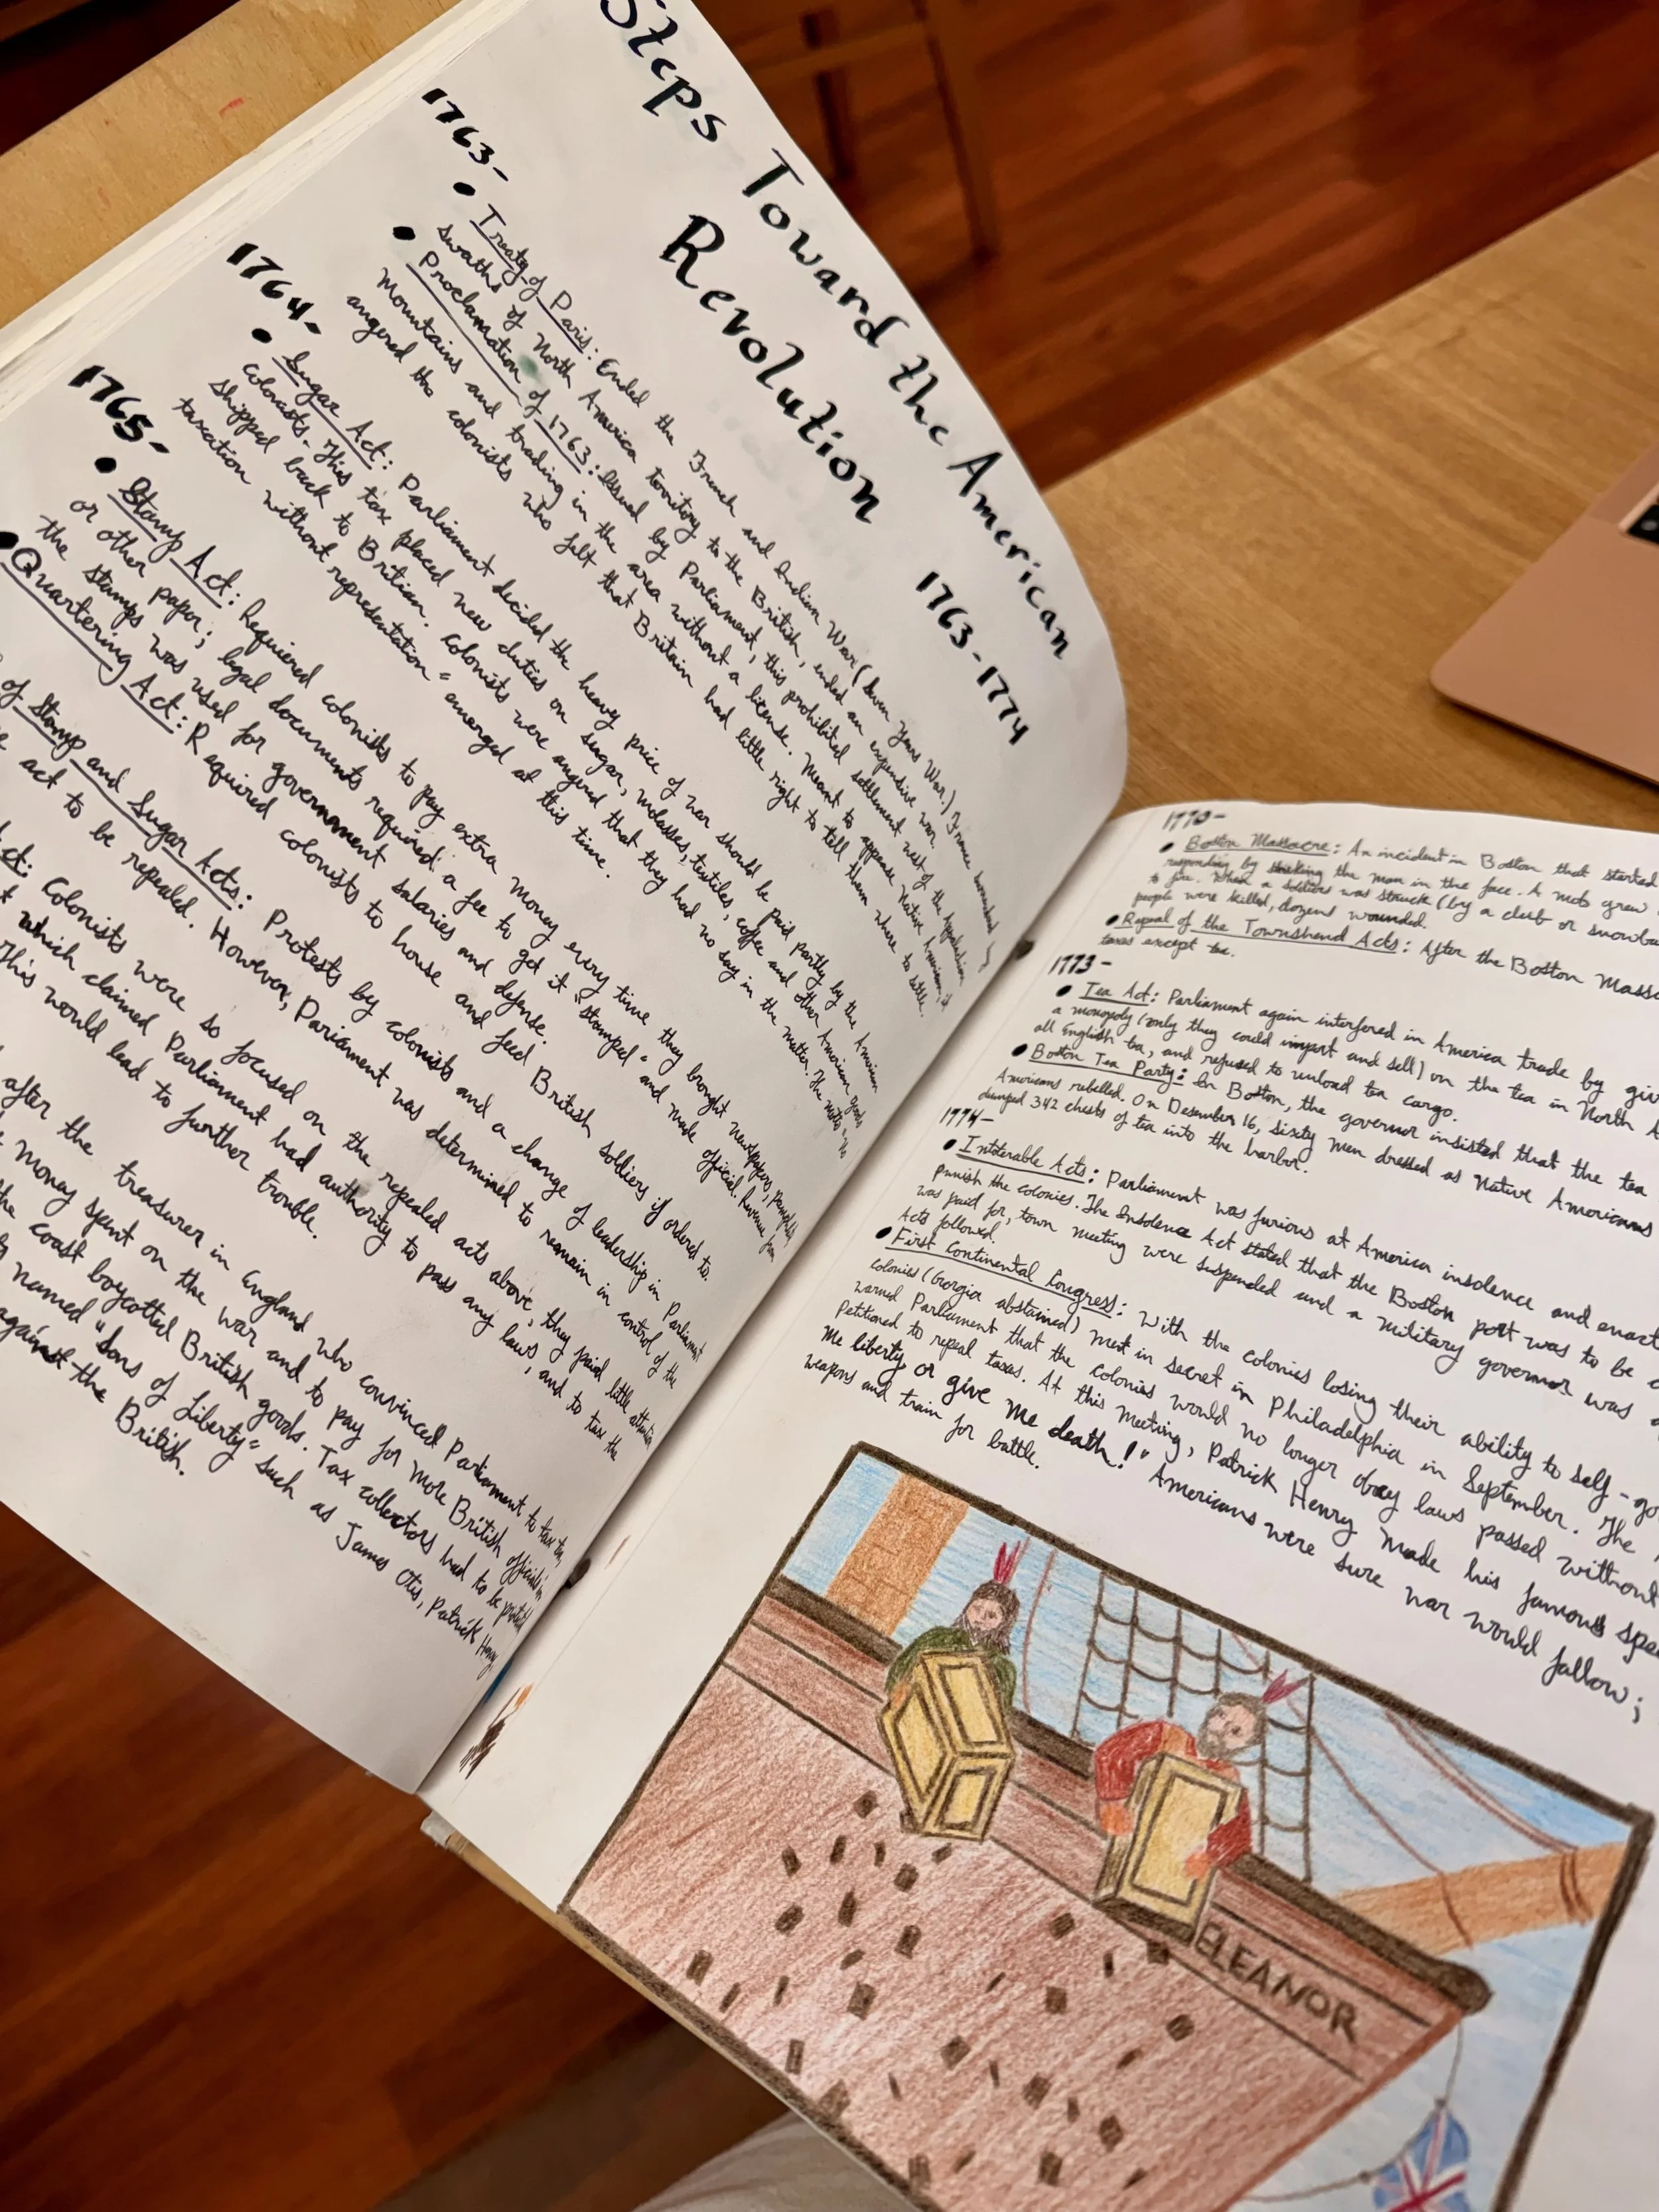 Steps Toward the American
Revolution 1763-1774
1763-
• Treaty of Paris: Ended the French and Indian War (Seven Years War.) France
swaths of North America territory to the British, ended an expensive war.
• Proclamation of 1763: Issued by Parliament, this prohibited settlement west of the
Mountains and trading in the area without a license. Meant to appease Native
angered the colonists who felt that Britain had little right to tell them where to settle.
1764-
• Sugar Act: Parliament decided the heavy price of war should be paid partly by the American
colonists. This tax placed new duties on sugar, molasses, textiles, coffee and other American goods
shipped back to Britian. Colonists were angered that they had no say in the matter. The
taxation without representation" emerged at this time.
1765-
• Stamp Act: Requiered colonists to pay extra money every time they brought newspapers, pamphlets
or other paper; legal documents required a fee to get it "stamped" and made official. Revenue from
the stamps was used for government salaries and defense.
• Quartering Act: Required colonists to house and feed British soldiers if ordered to.
of Stamp and Sugar Acts: Protests by colonists and a change of leadership in Parliament
act to be repealed. However, Parliament was determined to remain in control of the
Act: Colonists were so focused on the repealed acts above, they paid little attention
which claimed Parliament had authority to pass any laws, and to tax the
This would lead to further trouble.
after the treasurer in England who convinced Parliament to tax tea,
money spent on the war and to pay for more British officials in
the coast boycotted British goods. Tax collectors had to be
named "Sons of Liberty" such as James Otis, Patrick Henry
against the British.
1770-
• Boston Massacre: An incident in Boston that started
responding by striking the man in the face. A mob grew
to fire. When a soldier was struck (by a club or snowba
people were killed, dozens wounded.
• Repeal of the Townshend Acts: After the Boston Massa
taxes except tea.
1773-
• Tea Act: Parliament again interfered in America trade by giv
a monopoly (only they could import and sell) on the tea in North A
all English tea, and refused to unload tea cargo.
• Boston Tea Party: In Boston, the governor insisted that the tea
Americans rebelled. On Desember 16, sixity men dressed as Native Americans
dumped 342 chests of tea into the harbor.
1774-
• Intolerable Acts: Parliament was furious at America insolence and enact
punish the colonies. The Insolence Act stated that the Boston port was to be c
was paid for, town meeting were suspended and a military governor was a
Acts followed.
• First Continental Congress: With the colonies losing their ability to self-go
colonies (Georgia abstained) met in secret in Philadelphia in September. The
warned Parliament that the colonies would no longer obey laws passed without
Petitioned to repeal taxes. At this meeting, Patrick Henry made his famous spe
me liberty or give me death!" Americans were sure war would follow;
weapons and train for battle.
ELEANOR